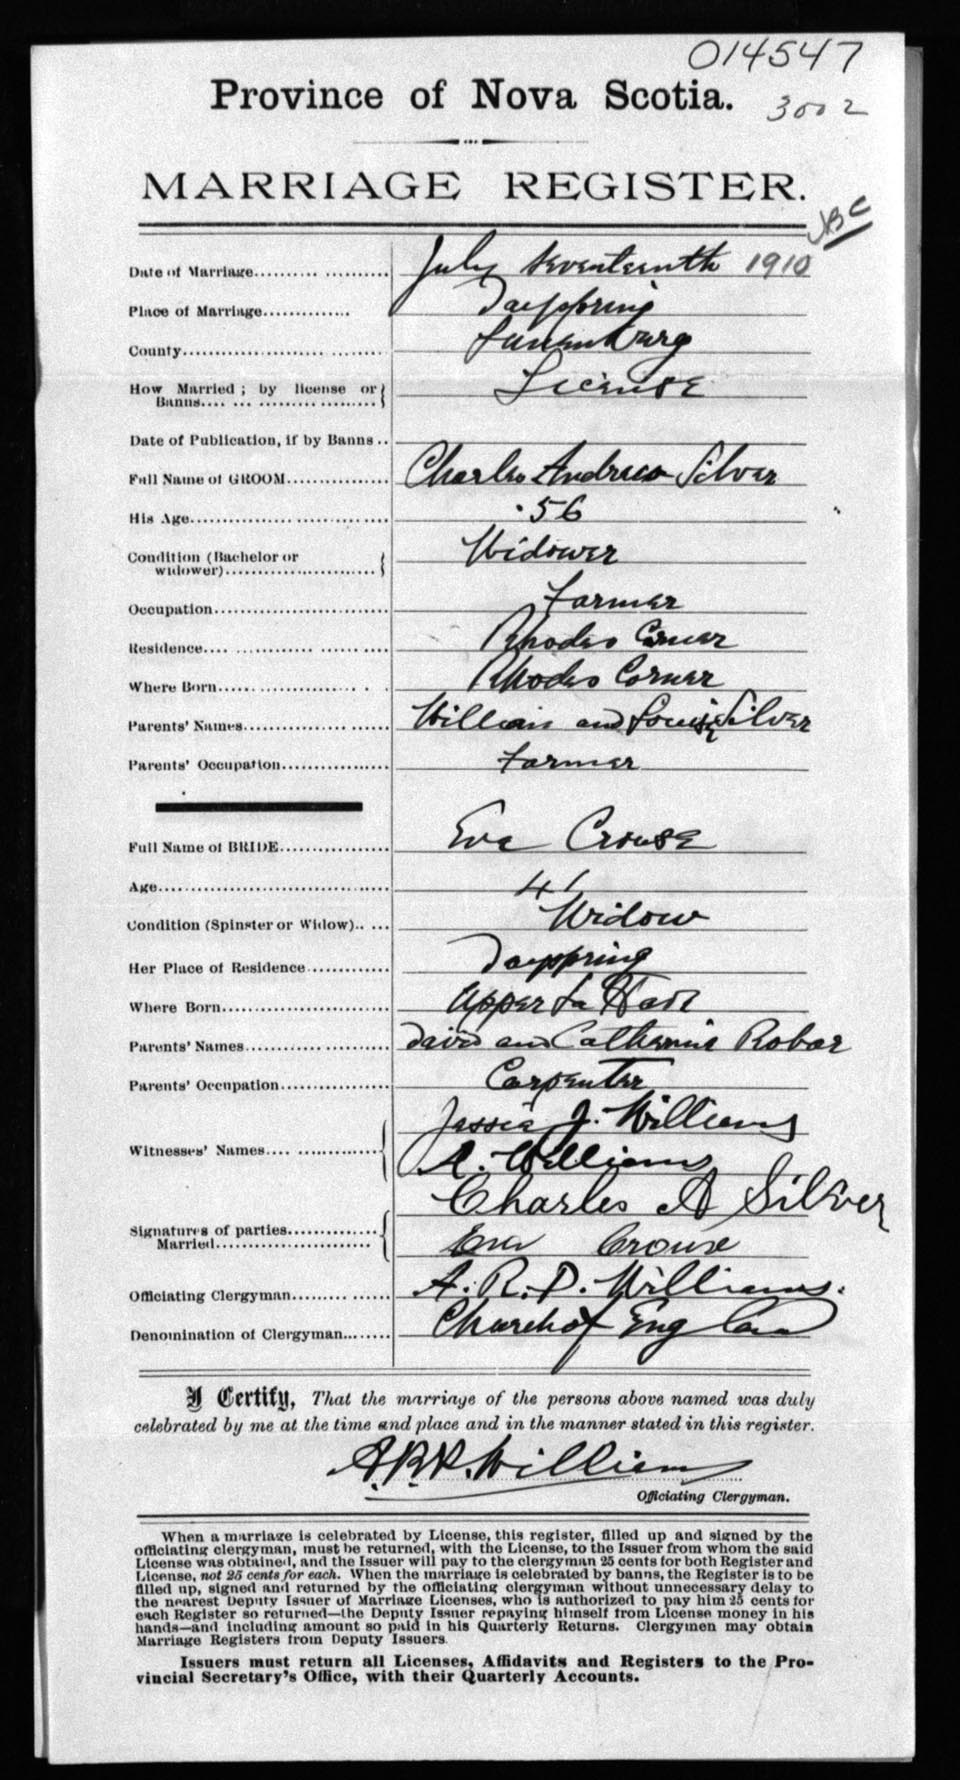 014547
Province of Nova Scotia.
3002
MARRIAGE REGISTER.
ABC
Date of Marriage.......... ............ July seventeenth 1910
Place of Marriage.............. Dayspring
County................................ Lunenburg
How Married ; by license or Banns.... ... .................. License
Date of Publication, if by Banns ..
Full Name of GROOM................ Charles Andrew Silver
His Age............................... 56
Condition (Bachelor or widower)........................ Widower
Occupation............................ Farmer
Residence.... .............. ........ Rhodes Corner
Where Born..................... . . Rhodes Corner
Parents' Names...................... William and Louise Silver
Parents' Occupation................ Farmer
Full Name of BRIDE................ Eva Crouse
Age.................................... 41
Condition (Spinster or Widow).. ... Widow
Her Place of Residence............. Dayspring
Where Born......................... Upper La Have
Parents' Names...................... David and Catherine Robar
Parents' Occupation................ Carpenter
Witnesses' Names.... .............. Jessie J. Williams
A. Williams
Signatures of parties Married........................ Charles A Silver
Eva Crouse
Officiating Clergyman......... ...... A. R. P. Williams.
Denomination of Clergyman......... Church of England
I Certify, That the marriage of the persons above named was duly
celebrated by me at the time and place and in the manner stated in this register.
A.R.P. Williams
Officiating Clergyman.
When a marriage is celebrated by License, this register, filled up and signed by the
officiating clergyman, must be returned, with the License, to the Issuer from whom the said
License was obtained, and the Issuer will pay to the clergyman 25 cents for both Register and
License, not 25 cents for each. When the marriage is celebrated by banns, the Register is to be
filled up, signed and returned by the officiating clergyman without unnecessary delay to
the nearest Deputy Issuer of Marriage Licenses, who is authorized to pay him 25 cents for
each Register so returned—the Deputy Issuer repaying himself from License money in his
hands—and including amount so paid in his Quarterly Returns. Clergymen may obtain
Marriage Registers from Deputy Issuers.
Issuers must return all Licenses, Affidavits and Registers to the Pro-
vincial Secretary's Office, with their Quarterly Accounts.